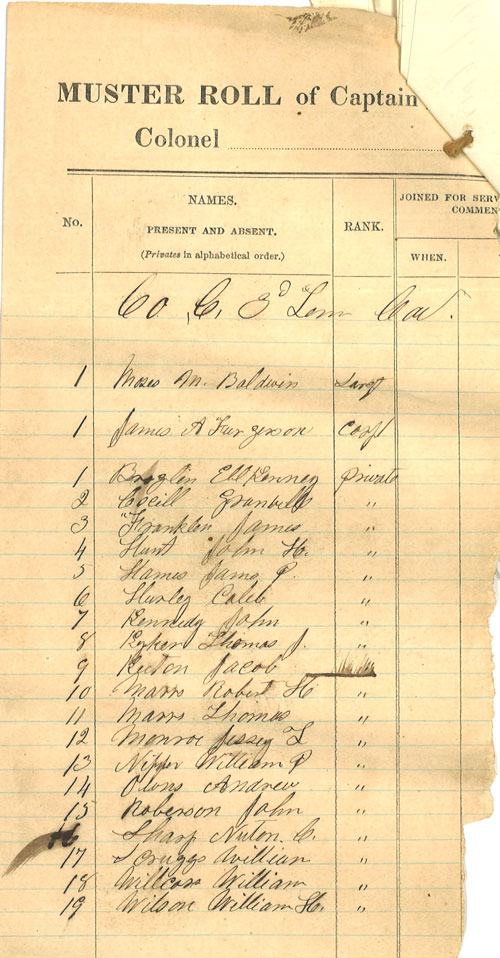 MUSTER ROLL of Captain
Colonel
No.
NAMES.
PRESENT AND ABSENT.
(Privates in alphabetical order.)
RANK.
JOINED FOR SERV
COMMEN
WHEN.
Co, C. 3d Tenn Cav.
1 Moses M. Baldwin Sargt
1 James A Furgerson Corpl
1 Private
2 Cecill Granvill "
3 Franklin James "
4 Hunt John H. "
5 P. "
6 Hurley Caleb "
7 Kennedy John "
8 Ryker Thomas J. "
9 Jacob
10 Marrs Robert H "
11 Marrs Thomas "
12 Monroe Jessey L "
13 Nipper William P "
14 Olons Andrew "
15 Roberson John "
16 Sharp Nuton C. "
17 Scruggs William "
18 Willcox William "
19 Wilson William H. "